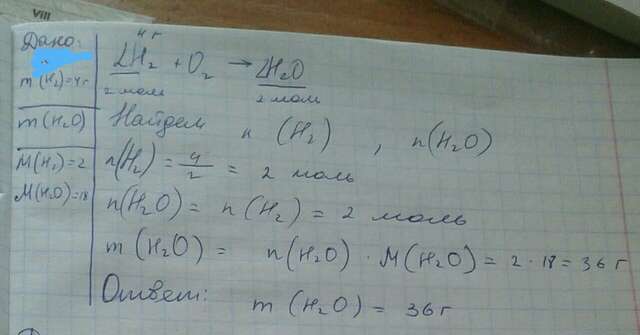 VIII
Дано:
m(H₂)=4г
m(H₂O)
M(H₂)=2
M(H₂O)=18
4 г
2H₂ + O₂ → 2H₂O
2 моль 2 моль
Найдем n (H₂) , n(H₂O)
n(H₂) = 4/2 = 2 моль
n(H₂O) = n(H₂) = 2 моль
m(H₂O) = n(H₂O) · M(H₂O) = 2 · 18 = 36 г
Ответ: m(H₂O) = 36г